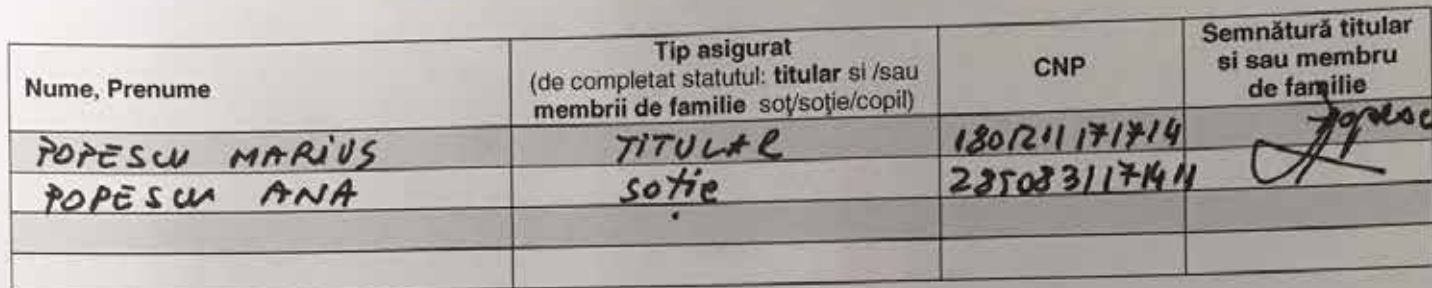 Nume, Prenume
Tip asigurat
(de completat statutul: titular si /sau
membrii de familie soț/soție/copil)
CNP
Semnătură titular
si sau membru
de familie
POPESCU MARIUS TITULAR
POPESCU ANA soție